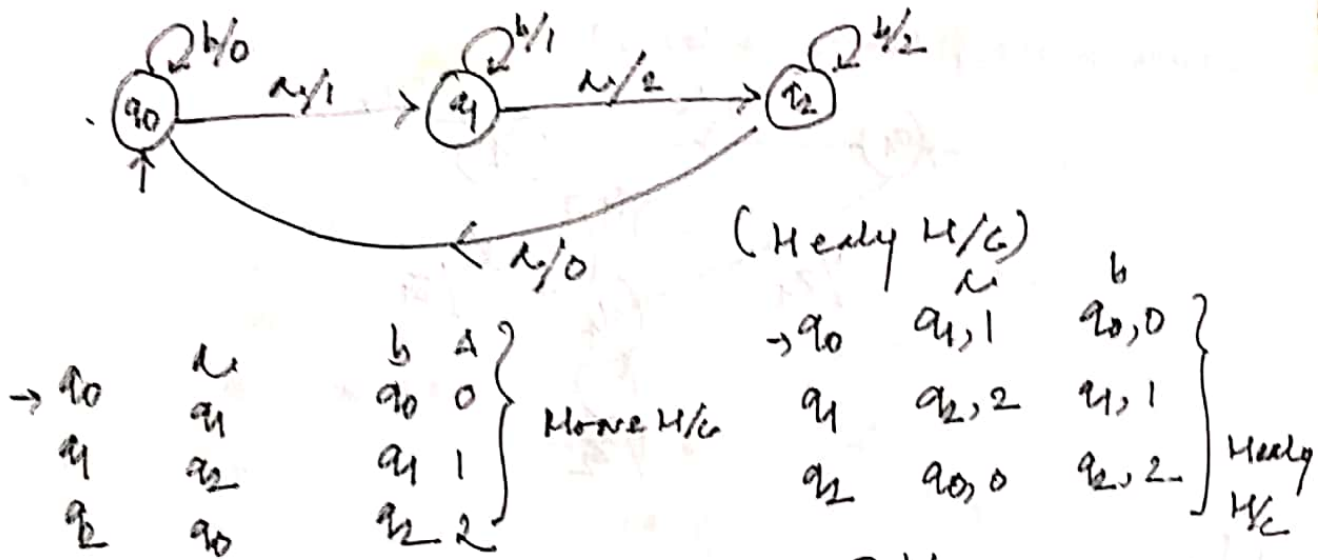 b/0 b/1 b/2
q0 a/1 q1 a/2 q2
a/0
(Mealy M/C)
a b Δ
→ q0 q1 q0 0
q1 q2 q1 1
q2 q0 q2 2
Moore M/C
a b
→ q0 q1, 1 q0, 0
q1 q2, 2 q1, 1
q2 q0, 0 q2, 2
Mealy
M/C